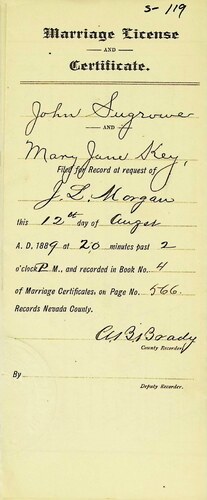 S-119
Marriage License
AND
Certificate.
John Sugrowe
AND
Mary Jane Key,
Filed for Record at request of
J. L. Morgan
this 12th day of Augst
A. D. 1889 at 20 minutes past 2
o'clock P. M., and recorded in Book No. 4
of Marriage Certificates, on Page No. 566
Records Nevada County.
Brady
County Recorder.
By
Deputy Recorder.